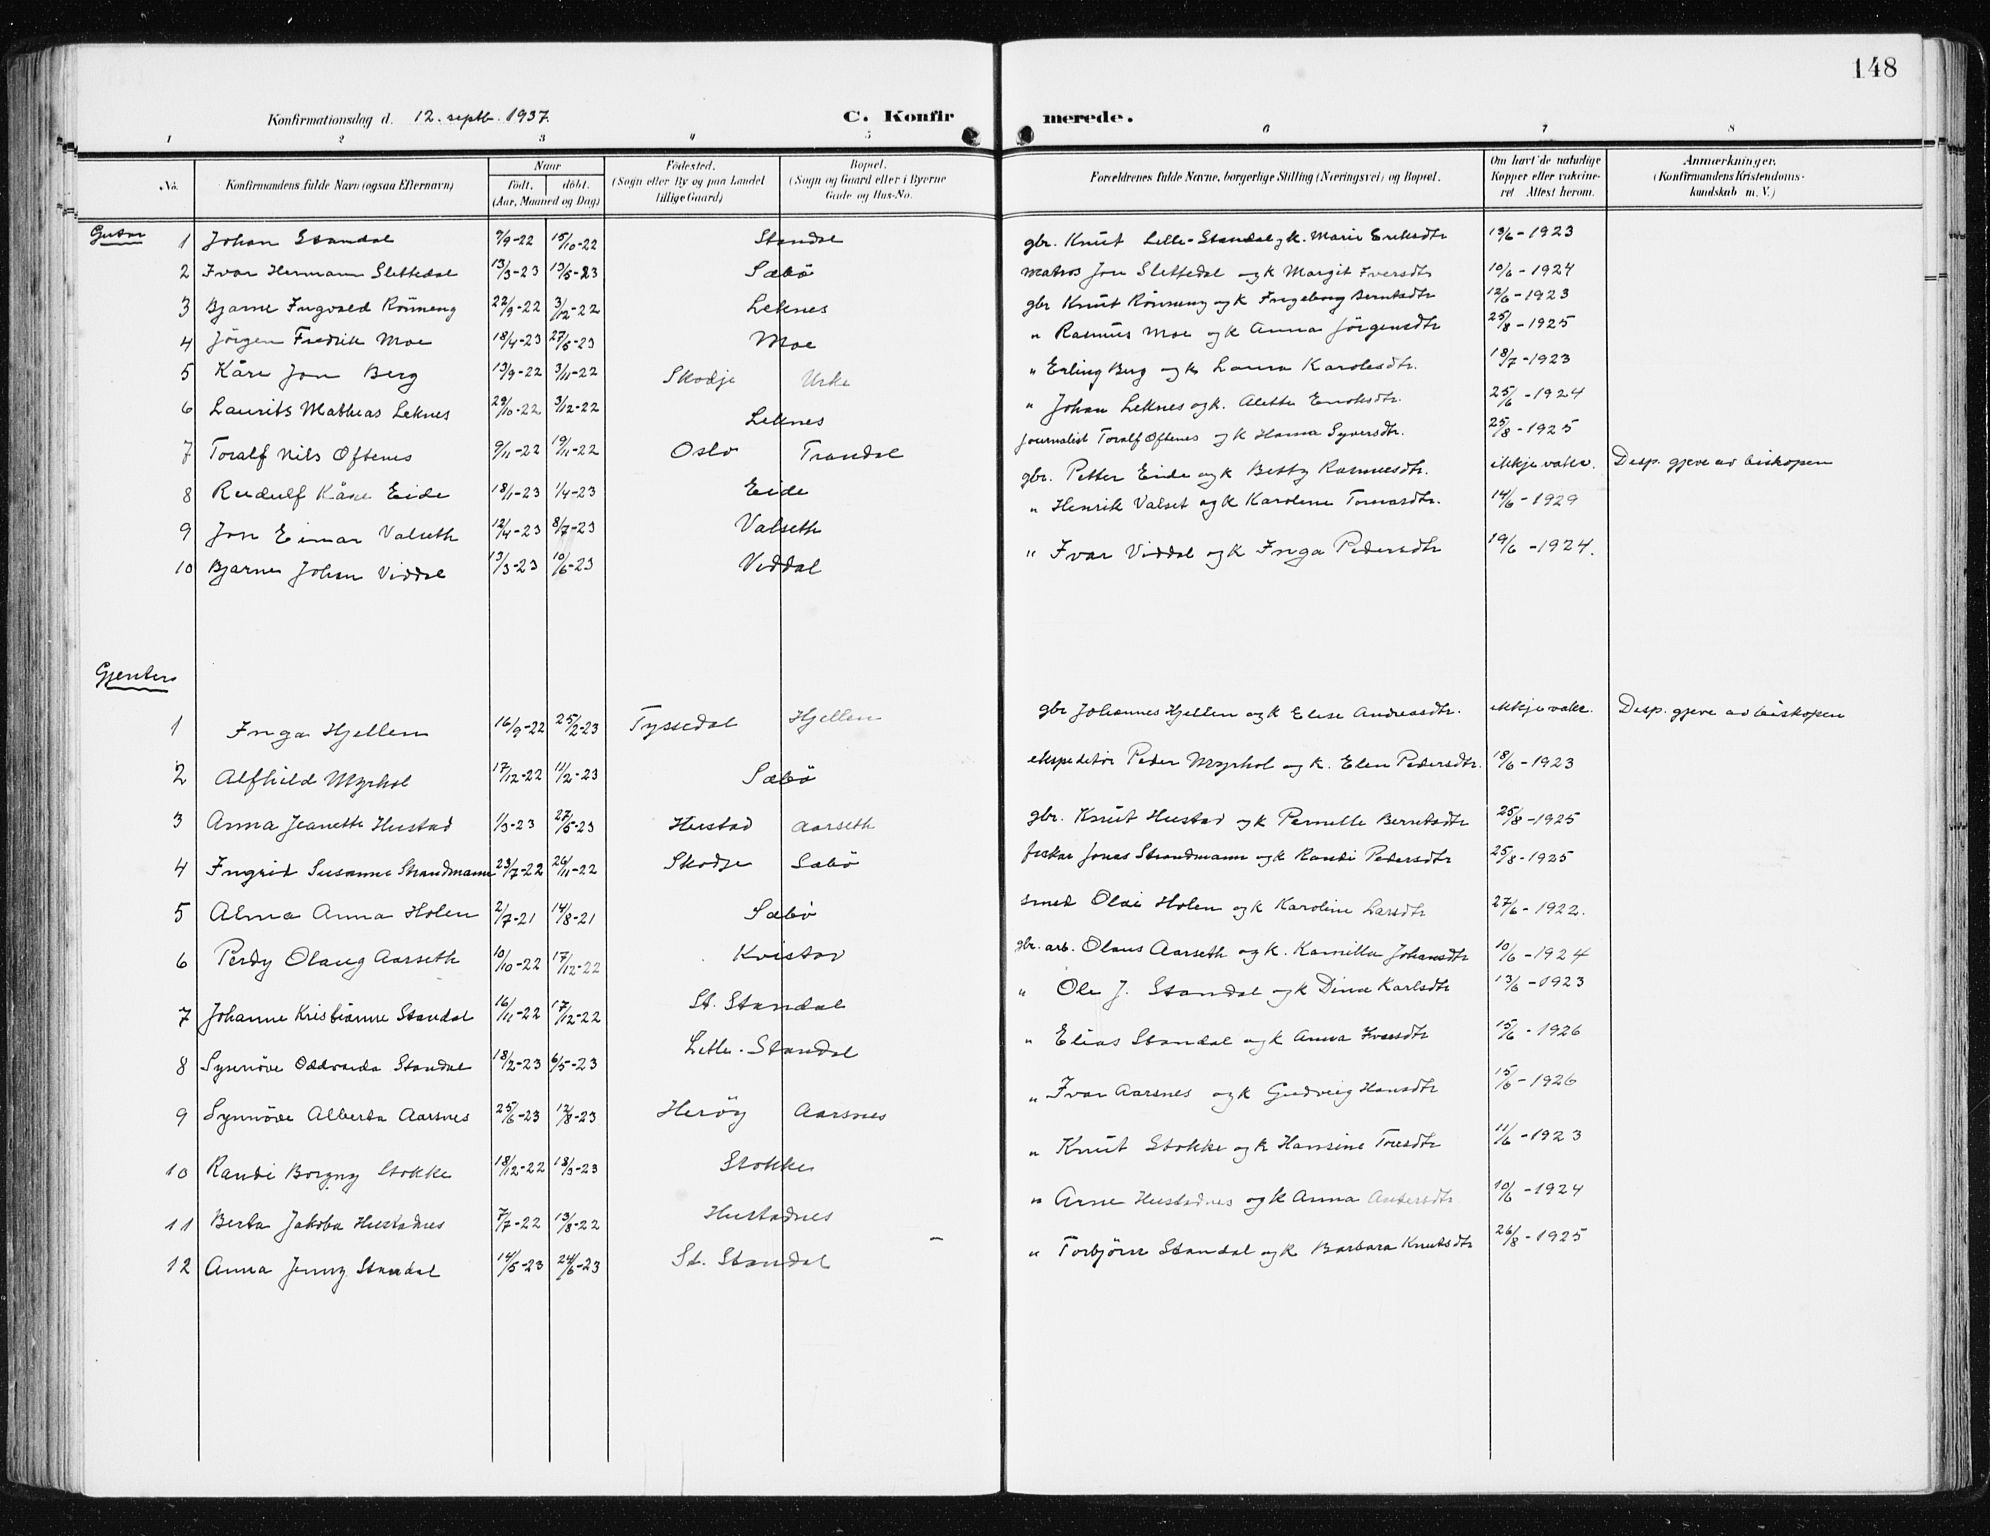 148
Konfirmationsdag d. 12. septb. 1937. C. Konfirmerede.
1 2 3 4 5 6 7 8
No. Konfirmandens fulde Navn (ogsaa Efternavn) Naar født. døbt. (Aar, Maaned og Dag) Fødested. (Sogn eller By og paa Landet tillige Gaard) Bopæl. (Sogn og Gaard eller i Byerne Gade og Hus-No. Forældrenes fulde Navne, borgerlige Stilling (Næringsvei) og Bopæl. Om havt de naturlige Kopper eller vakcineret Attest herom. Anmærkninger. (Konfirmandens Kristendomskundskab m. V.)
Gutar
1 Johan Standal 9/9-22 15/10-22 Standal gbr. Knut Lille-Standal og k. Marie Eriksdtr 19/6-1923
2 Ivar Hermann Slettedal 13/3-23 13/5-23 Sæbö matros Jon Slettedal og k Margit Iversdtr 10/6-1924
3 Bjarne Ingvald Rönneng 22/9-22 3/12-22 Leknes gbr Knut Rönneng og k Ingeborg Berntsdtr 12/6-1923
4 Jörgen Fredrik Moe 18/4-23 27/5-23 Moe " Rasmus Moe og k Anna Jörgensdtr 25/8-1925
5 Kåre Jon Berg 13/9-22 3/11-22 Skodje Urke " Erling Berg og k Laura Karolesdtr. 18/7-1923
6 Laurits Mathias Leknes 29/10-22 3/12-22 Leknes " Johan Leknes og k. Alette Enoksdtr. 25/6-1924
7 Toralf Nils Oftenes 9/11-22 19/11-22 Oslo Trandal journalist Toralf Oftenes og k Hanna Syversdtr. 25/8-1925
8 Rudulf Kåre Eide 18/1-23 1/4-23 Eide gbr. Petter Eide og k Betty Rasmusdtr. ikkje vakc. Desp. gjeve av biskopen
9 Jon Einar Valseth 12/4-23 8/7-23 Valseth " Henrik Valset og k Karoline Tomasdtr. 14/6-1929
10 Bjarne Johan Viddal 13/3-23 10/6-23 Viddal " Ivar Viddal og k Inga Pedersdtr 19/6-1924.
Gjenter
1 Inga Hjellen 16/9-22 25/2-23 Tyssedal Hjellen gbr Johannes Hjellen og k Elise Andreasdtr. ikkje vakc. Desp. gjeve av biskopen
2 Alfhild Myrhol 17/12-22 11/2-23 Sæbö ekspeditör Peder Myrhol og k. Elen Pedersdtr. 18/6-1923
3 Anna Jeanette Hustad 1/3-23 27/5-23 Hustad Aarseth gbr. Knut Hustad og k Pernille Berntsdtr 25/8-1925
4 Ingrid Susanne Strandmann 23/7-22 26/11-22 Skodje Sæbö fiskar Jonas Strandmann og k Randi Pedersdtr 25/8-1925
5 Alma Anna Holen 2/7-21 14/8-21 Sæbö smed Olai Holen og k Karoline Larsdtr 27/6-1922.
6 Perdy Olaug Aarseth 10/10-22 17/12-22 Kvistad gbr. arb. Olaus Aarseth og k. Kamilla Johansdtr 10/6-1924
7 Johanne Kristianne Standal 16/11-22 17/12-22 St. Standal " Ole J. Standal og k Dina Karlsdtr 13/6-1923
8 Synnöve Oddvarda Standal 18/2-23 6/5-23 Litle-Standal " Elias Standal og k Anna Ivarsdtr 15/6-1926
9 Synnöve Alberta Aarsnes 25/6-23 12/8-23 Heröy Aarsnes " Ivar Aarsnes og k Gudveig Hansdtr 15/6-1926
10 Randi Borgny Stokke 18/12-22 18/3-23 Stokke " Knut Stokke og k Hansine Toresdtr 11/6-1923
11 Berta Jakoba Hustadnes 7/7-22 13/8-22 Hustadnes " Arne Hustadnes og k Anna Andersdtr 10/6-1924
12 Anna Jenny Standal 14/5-23 24/6-23 St. Standal " Torbjörn Standal og k Barbara Knutsdtr 26/8-1925